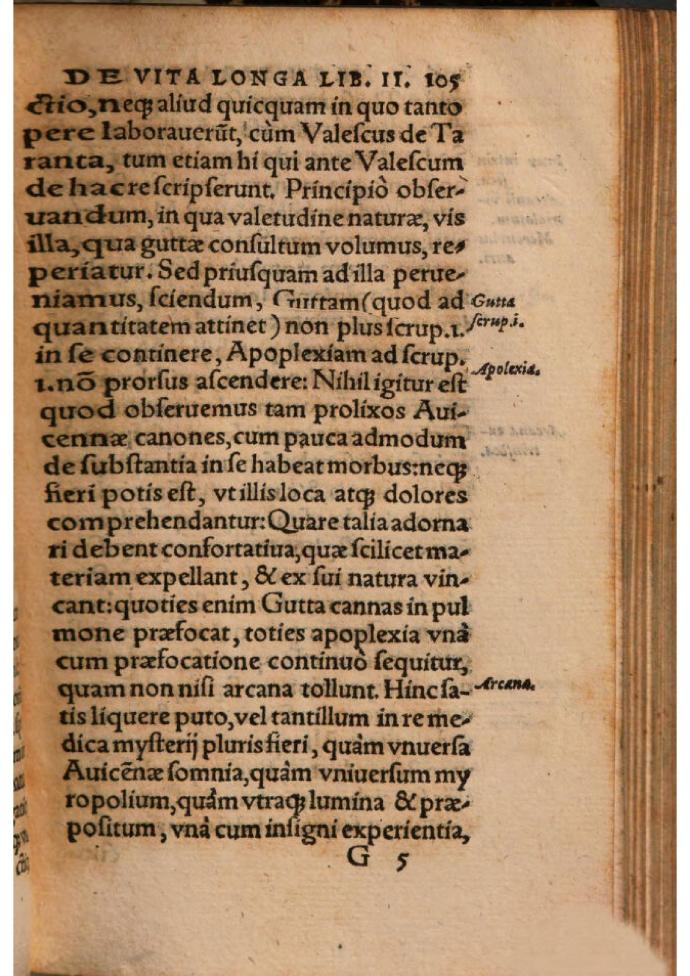 DE VITA LONGA LIB. II. 105
ctio, neq; aliud quicquam in quo tanto
pere laborauerũt, cùm Valescus de Ta
ranta, tum etiam hi qui ante Valescum
de hac re scripserunt. Principiò obser-
uandum, in qua valetudine naturæ, vis
illa, qua guttæ consultum volumus, re-
periatur. Sed priusquam ad illa perue-
niamus, sciendum, Guttam (quod ad
Gutta
quantitatem attinet) non plus scrup.1.
scrup.i.
in se continere, Apoplexiam ad scrup.
Apolexia.
1.nõ prorsus ascendere: Nihil igitur est
quod obseruemus tam prolixos Aui-
cennæ canones, cum pauca admodum
de substantia in se habeat morbus: neq;
fieri potis est, vt illis loca atq; dolores
comprehendantur: Quare talia adorna
ri debent confortatiua, quæ scilicet ma-
teriam expellant, & ex sui natura vin-
cant: quoties enim Gutta cannas in pul
mone præfocat, toties apoplexia vnà
cum præfocatione continuò sequitur,
quam non nisi arcana tollunt. Hinc sa-
Arcana.
tis liquere puto, vel tantillum in re me-
dica mysterij pluris fieri, quàm vnuersa
Auicẽnæ somnia, quàm vniuersum my
ropolium, quàm vtraq; lumina & præ-
positum, vnà cum insigni experientia,
G 5